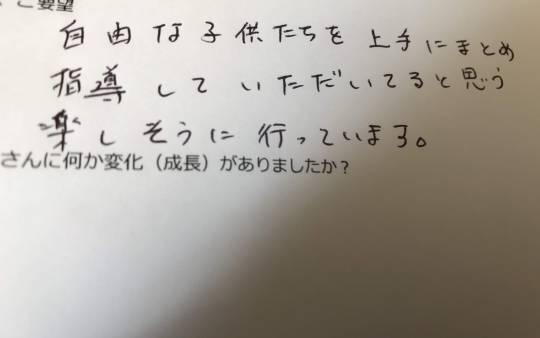 ご要望
自由な子供たちを上手にまとめ
指導していただいてると思う
楽しそうに行っています。
さんに何か変化（成長）がありましたか？